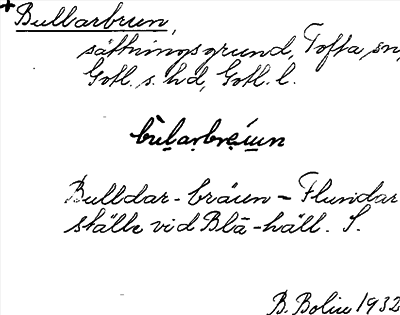 +Bullarbrun,
sättningsgrund, Tofta sn,
Gotl. s. hd, Gotl. l.
bùlarbrǽun
Bulldar-bräun – Flundar
ställe vid Blå-häll. S.
B. Bolin 1932